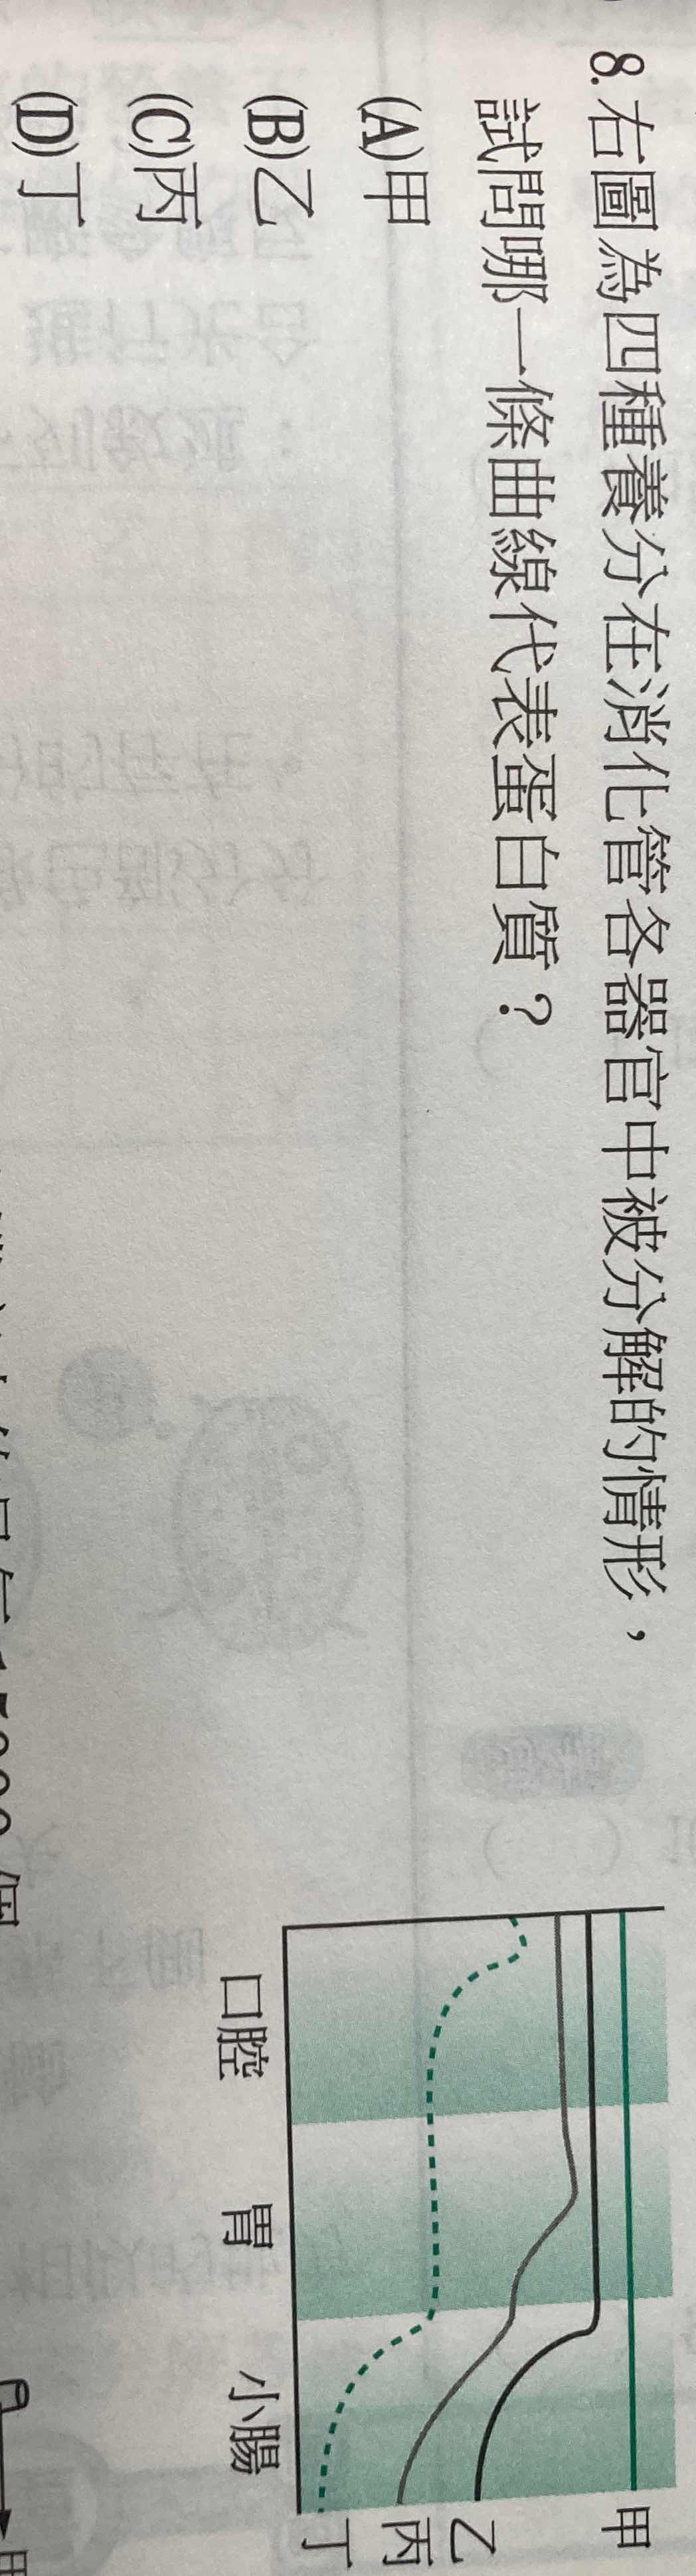 8.右圖為四種養分在消化管各器官中被分解的情形，
試問哪一條曲線代表蛋白質？
(A)甲
(B)乙
(C)丙
(D)丁
甲
乙
丙
丁
口腔 胃 小腸